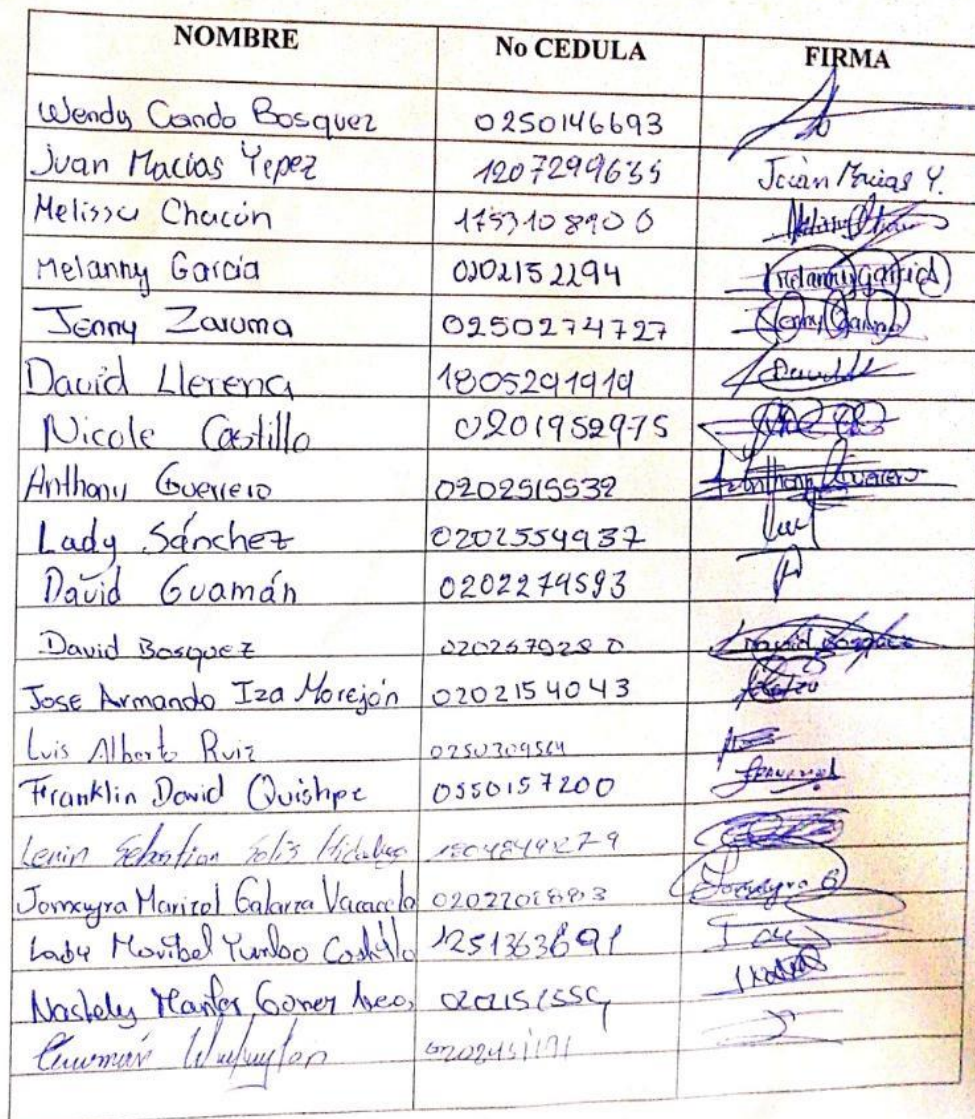 NOMBRE No CEDULA FIRMA
Wendy Cando Bosquez 0250146693
Juan Macias Yepez 1207299635 Juan Macias Y.
Melissa Chacón 1753108900
Melanny García 0202152294 Melanny García
Jenny Zaruma 0250274727 Jenny Zaruma
David Llerena 1805291919 David
Nicole Castillo 0201952975
Anthony Guerrero 0202515532 Anthony Guerrero
Lady Sánchez 0202554937
David Guamán 0202274593
David Bosquez 0202579280 David Bosquez
Jose Armando Iza Morejón 0202154043
Luis Alberto Ruiz 0250309564
Franklin David Quishpe 0550157200
Lenin Sebastian Solis Hidalgo
Jomayra Marizol Galarza Vacacela Jomayra G
Lady Maribel Yumbo Castillo 1251363691
Nashely
Guamán